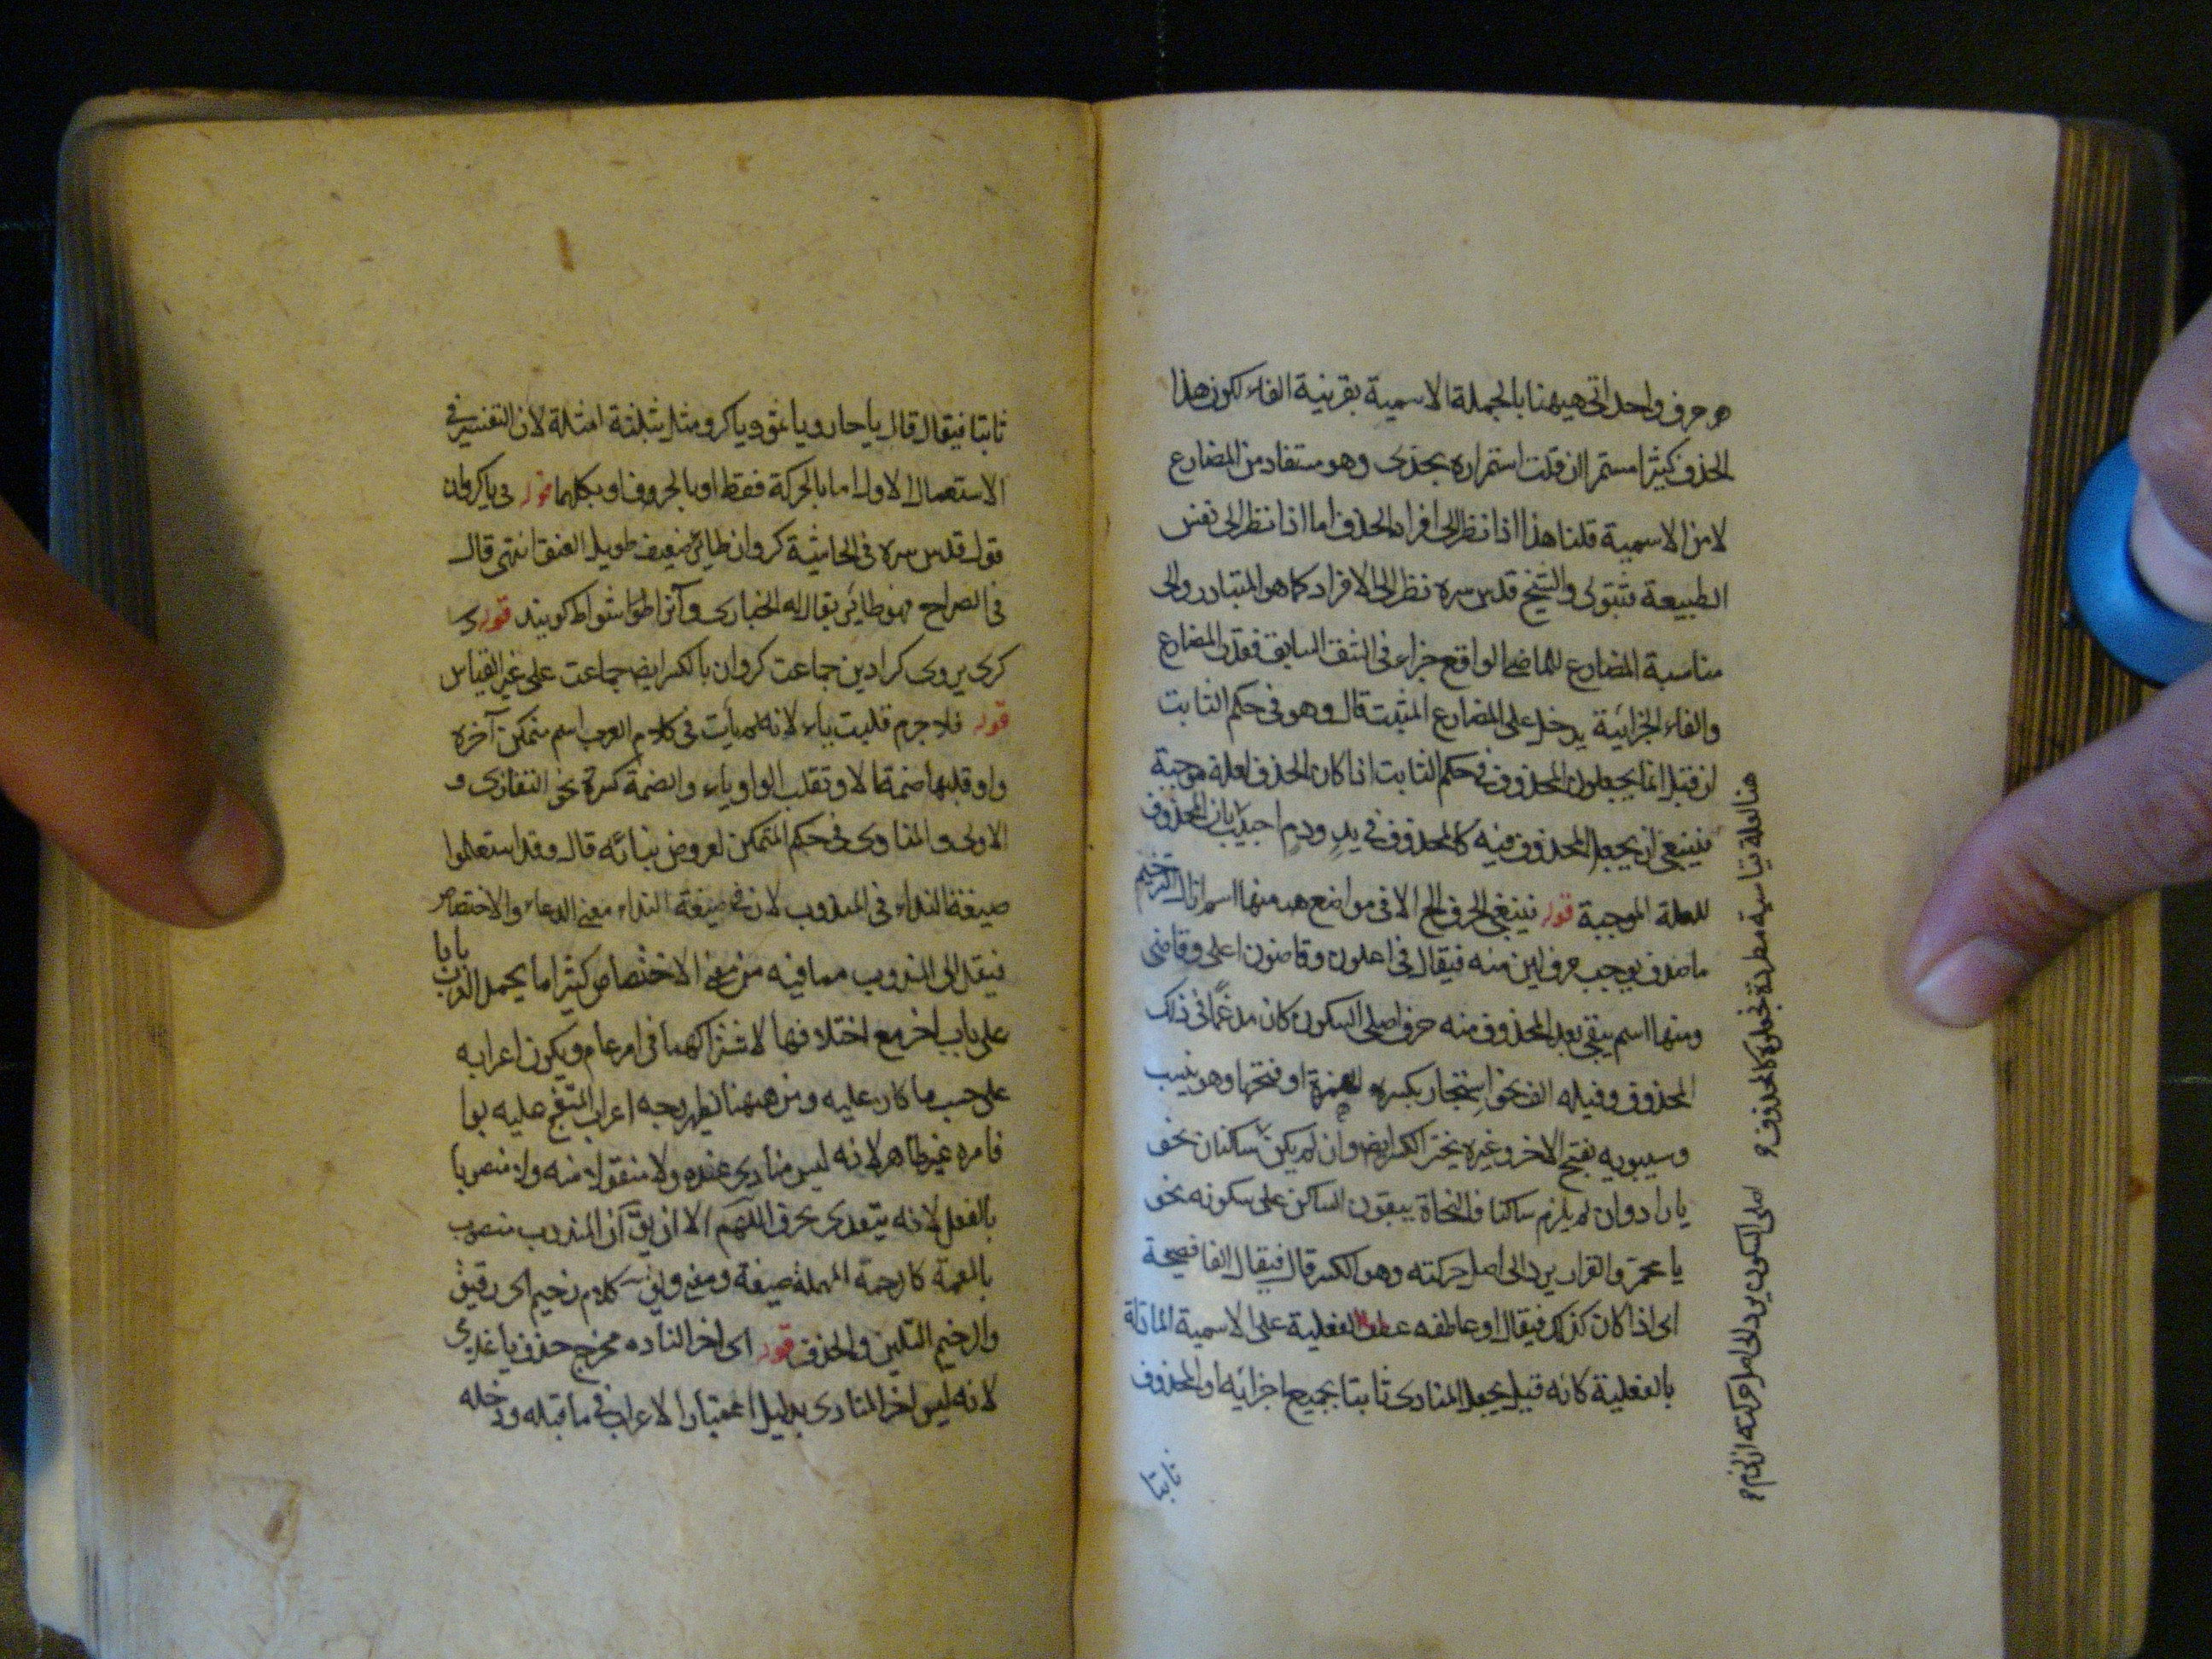 هو حرف واحد اتى ههنا بالجملة الاسمية بقرينة الفاء لكون هذا
الحذف كثيرا مستمرا ان قلت استمراره تجددى وهو مستفاد من المضارع
لا من الاسمية قلنا هذا اذا نظر الى افراد الحذف اما اذا نظر الى نفس
الطبيعة فثبوتى والشيخ قدس سره نظر الى الافراد كما هو المتبادر والى
مناسبة المضارع للماضى الواقع جزاء فى الشق السابق فقدر المضارع
والفاء الجزائية يدخل على المضارع المثبت قال وهو فى حكم الثابت
ان قيل انما يجعلون المحذوف فى حكم الثابت اذا كان الحذف لعلة موجبة
فينبغى ان يجعل المحذوف فيه كالمحذوف فى يد ودم اجيب بان المحذوف
للعلة الموجبة قوله فيبقى الحرف الخ الا فى مواضع منها اسم ازال الترخيم
ما حذف بوجب حرف لين منه فيقال فى اعلون وقاضون اعلى وقاضى
ومنها اسم يبقى بعد المحذوف منه حرف اصلى السكون كان مدغما فى ذلك
المحذوف وقبله الف نحو اسحار بكسر الهمزة او فتحها وهو نبت
وسيبويه يفتح الاخر وغيره يختار الكسر ايضا وان لم يكن ساكنان نحو
يا راد وان لم يلزم ساكنا فالنحاة يبقون الساكن على سكونه نحو
يا محمر والفراء يرد الى اصل حركته وهو الكسر قال فيقال الفا فصيحة
اى اذا كان كذلك فيقال او عاطفه عطف الفعلية على الاسمية الماتلة
بالفعلية كانه قيل يجعل المنادى ثابتا بجميع اجزائه او المحذوف
ثابتا
هنا لعلة قياسية مطردة نحملوه كالمحذوف
اصلى السكون يرد الى اصل حركته ان لزم
ثابتا فيقال قال يا حار ويا ثمو ويا كرو مثل بثلثة امثلة لان التغيير فى
الاستعمال الاول اما بالحركة فقط او بالحروف او بكلهما قوله فى يا كروان
قول قدس سره فى الحاشية كروان طائر ضعيف طويل العنق انتهى قال
فى الصراح هو طائر يقال له الحبارى وآنرا طوا شواط كويند قوله
كرى يروى كرادين جماعت كروان بالكسر ايضا جماعت على غير القياس
قوله فلا جرم قلبت ياء لانه لم يأت فى كلام العرب اسم متمكن آخره
واو قبلها ضمة الا وتقلب الواو ياء والضمة كسرة نحو التغازى و
الاولى والمنادى فى حكم المتمكن لعروض بنائه قال وقد استعملوا
صيغة النداء فى المندوب لان فى صيغة النداء معنى الدعاء والاختصاص
فينقل الى المندوب مما فيه من معنى الاختصاص كثيرا ما يحمل العرب بابا
على باب اخر مع اختلافهما لاشتراكهما فى امر عام ويكون اعرابه
على حسب ما كان عليه ومن ههنا يظهر وجه اعراب المتفجع عليه بوا
فامره غير ظاهر لانه ليس منادى عنده ولا منقولا منه ولا منصوبا
بالفعل لانه يتعدى بحرف اللهم الا ان يقال ان المندوب منصوب
بالعمة كارحمة المهملة صيغة ومعنى ويق كلام رخيم اى رقيق
والرخيم التليين والحذف قوله اى اخر المناده مخرج حذف يا غلامى
لانه ليس اخر المنادى بدليل اعتبار الاعراب فى ما قبله ودخله